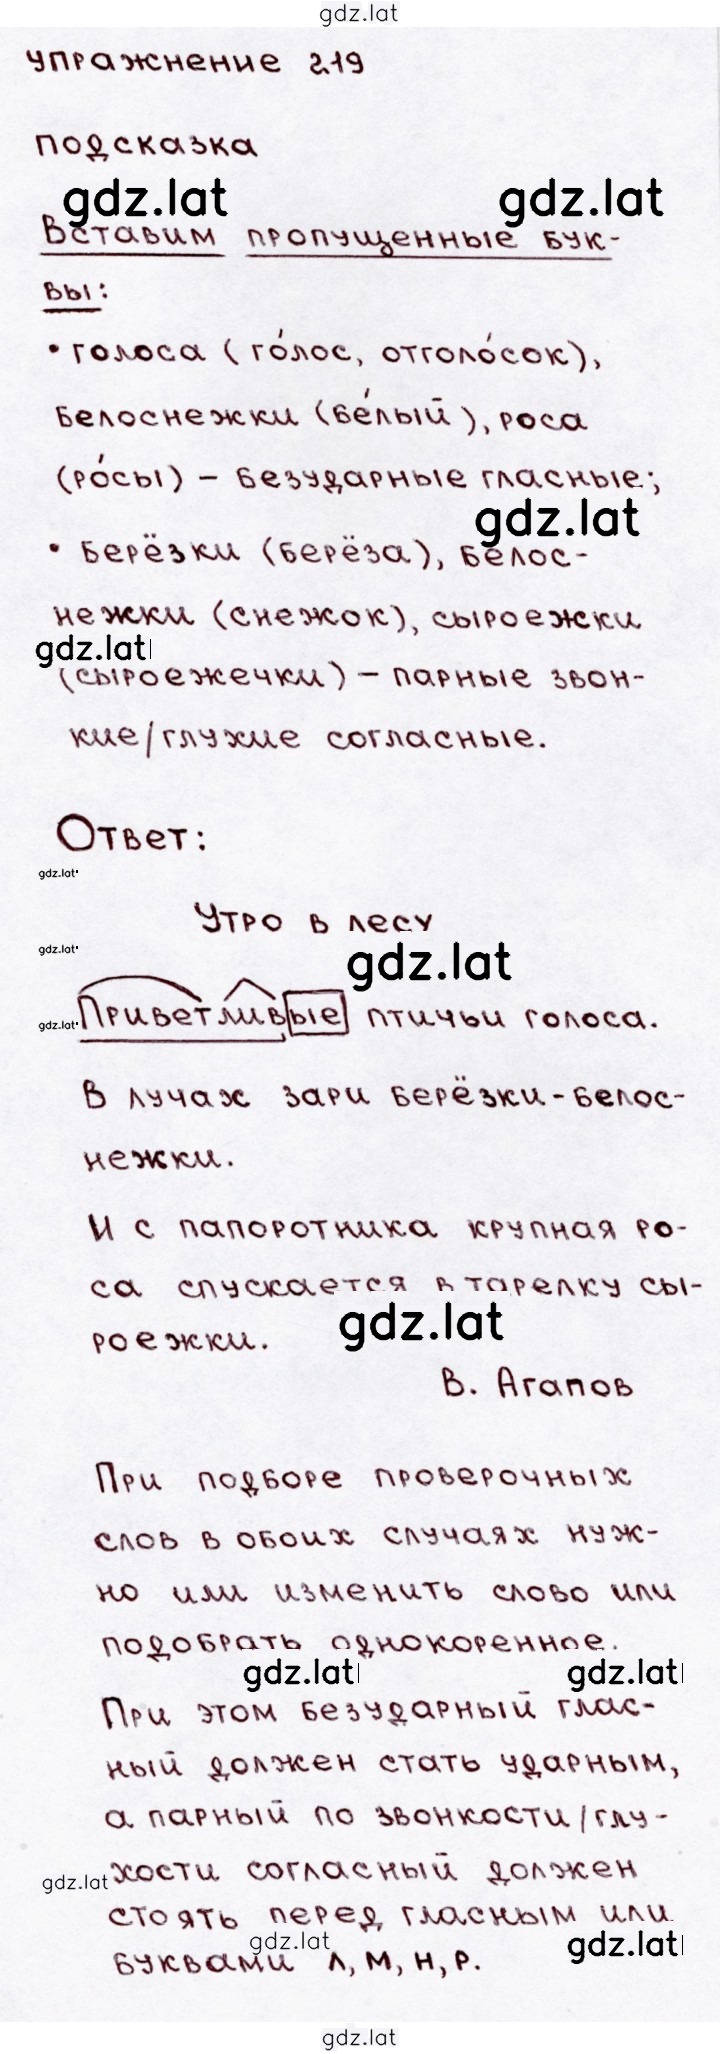 gdz.lat
упражнение 219
подсказка
gdz.lat gdz.lat
Вставим пропущенные бук-
вы:
• голоса (го́лос, отголо́сок),
белоснежки (бе́лый), роса
(ро́сы) – безударные гласные;
gdz.lat
• берёзки (берёза), белос-
нежки (снежок), сыроежки
gdz.lat
(сыроежечки) – парные звон-
кие/глухие согласные.
Ответ:
gdz.lat
Утро в лесу
gdz.lat gdz.lat
gdz.lat
Приветливые птичьи голоса.
В лучах зари берёзки-белос-
нежки.
И с папоротника крупная ро-
са спускается в тарелку сы-
gdz.lat
роежки.
В. Агапов
При подборе проверочных
слов в обоих случаях нуж-
но или изменить слово или
подобрать однокоренное.
gdz.lat gdz.lat
При этом безударный глас-
ный должен стать ударным,
а парный по звонкости/глу-
gdz.lat
хости согласный должен
стоять перед гласным или
gdz.lat gdz.lat
буквами л, м, н, р.
gdz.lat